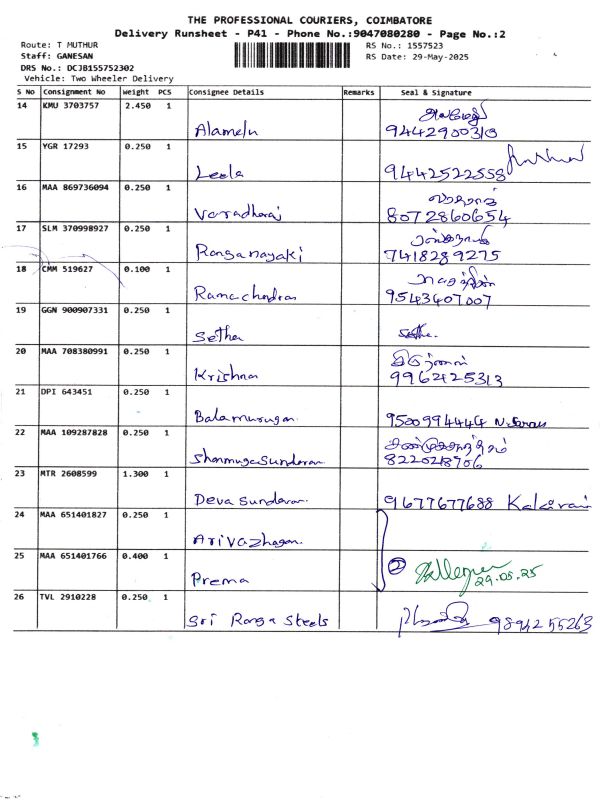 THE PROFESSIONAL COURIERS, COIMBATORE
Delivery Runsheet - P41 - Phone No.:9047080280 - Page No.:2
Route: T MUTHUR
RS No.: 1557523
Staff: GANESAN
RS Date: 29-May-2025
DRS No.: DCJB155752302
Vehicle: Two Wheeler Delivery
S No Consignment No Weight PCS Consignee Details Remarks Seal & Signature
14 KMU 3703757 2.450 1
Alamelu 9442900310
15 YGR 17293 0.250 1
Leela 9442522558
16 MAA 869736094 0.250 1
Varadharaj 8072860654
17 SLM 370998927 0.250 1
Ranganayaki 7418289275
18 CMM 519627 0.100 1
Ramachandran 9543407007
19 GGN 900907331 0.250 1
Sethu Sethu.
20 MAA 708380991 0.250 1
Krishna 9962125313
21 DPI 643451 0.250 1
Balamurugan. 9500994444
22 MAA 109287828 0.250 1
Shanmugasundaram 8220218706
23 MTR 2608599 1.300 1
Deva Sundaram. 9677677688
24 MAA 651401827 0.250 1
Arivazhagan.
25 MAA 651401766 0.400 1
Prema 2 29.05.25
26 TVL 2910228 0.250 1
Sri Ranga Steels 9894255263